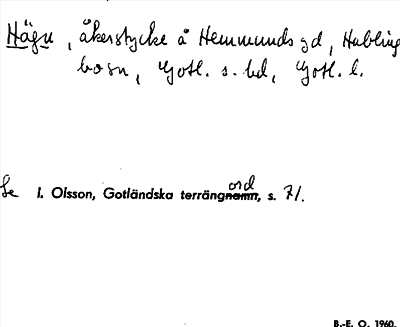 Hägu, åkerstycke å Hemmunds gd, Habling
bo sn, Gotl. s. hd, Gotl. l.
Se I. Olsson, Gotländska terrängnamn, s. 71.
ord
B.-E. O. 1960.